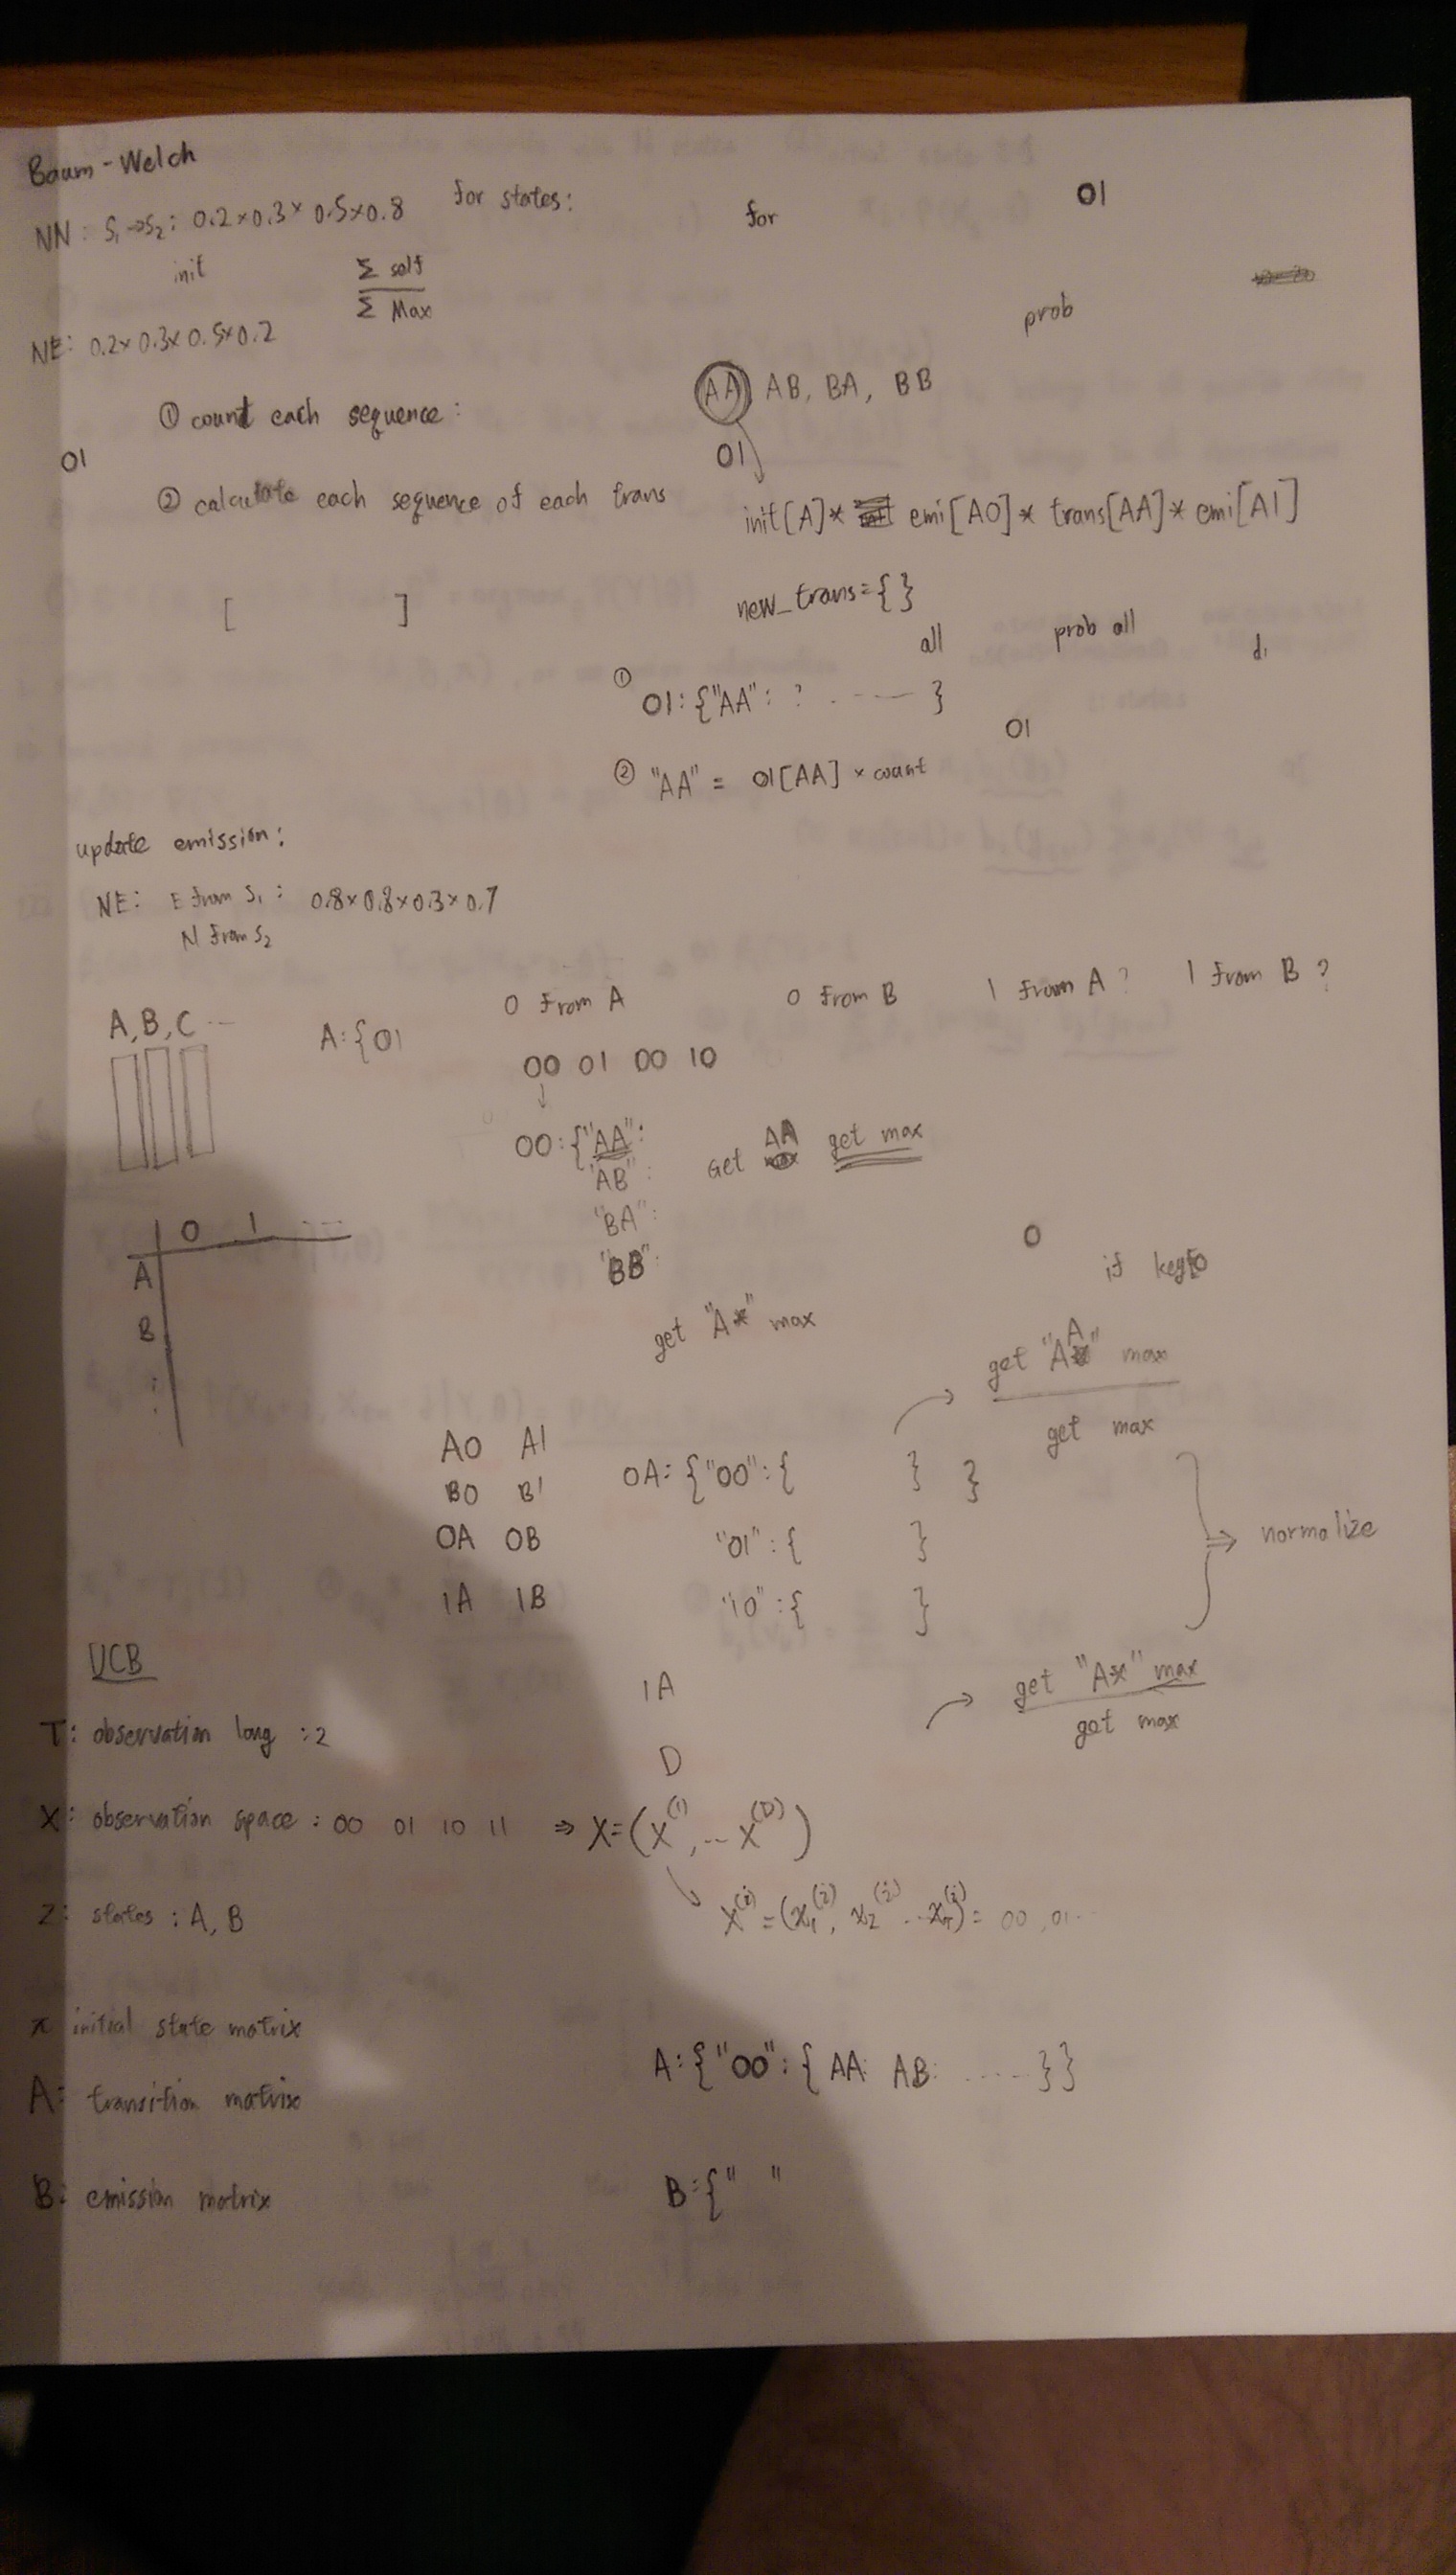 Baum-Welch
NN: S₁→S₂: 0.2×0.3×0.5×0.8 for states: for 01
init Σ self
Σ Max
NE: 0.2×0.3×0.5×0.2 prob
AA, AB, BA, BB
① count each sequence:
01 01
② calculate each sequence of each trans
init[A]* emi[A0]* trans[AA]* emi[A1]
[ ] new_trans={}
all prob all d₁
① 01:{"AA": ? . ---- }
01
② "AA" = 01[AA] × count
update emission:
NE: E from S₁: 0.8×0.8×0.3×0.7
N from S₂
0 from A 0 from B 1 from A? 1 from B?
A, B, C --
A:{01
00 01 00 10
↓
00:{"AA": Get AA get max
"AB":
"BA":
"BB":
0 1 --
A
B
⋮
0
if key[0
get "A*" max
get "AA" max
get max
A0 A1
B0 B1
0A 0B
1A 1B
0A: {"00":{ } }
"01":{ }
"10":{ }
⇒ normalize
1A
get "A*" max
get max
UCB
T: observation long :2
D
X: observation space: 00 01 10 11 ⇒ X=(X⁽¹⁾, -- X⁽ᴰ⁾)
X⁽ⁱ⁾=(x₁⁽ⁱ⁾, x₂⁽ⁱ⁾ ..x_T⁽ⁱ⁾)= 00, 01--
Z: states: A, B
π initial state matrix
A:{"00":{ AA: AB: ---- }}
A: transition matrix
B:{" "
B: emission matrix